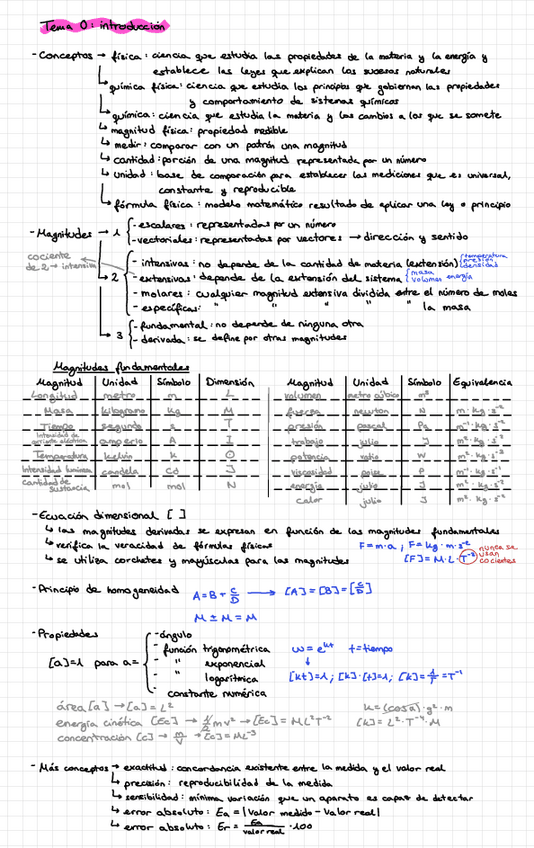 Tema 0: introducción
- Conceptos → física: ciencia que estudia las propiedades de la materia y la energía y
establece las leyes que explican los sucesos naturales
↳ química física: ciencia que estudia los principios que gobiernan las propiedades
y comportamiento de sistemas químicos
↳ química: ciencia que estudia la materia y los cambios a los que se somete
↳ magnitud física: propiedad medible
↳ medir: comparar con un patrón una magnitud
↳ cantidad: porción de una magnitud representada por un número
↳ unidad: base de comparación para establecer las mediciones que es universal,
constante y reproducible
↳ fórmula física: modelo matemático resultado de aplicar una ley o principio
- Magnitudes → 1 { - escalares: representadas por un número
- vectoriales: representadas por vectores → dirección y sentido
cociente de 2 → intensiva
↳ 2 { - intensivas: no depende de la cantidad de materia (extensión) { temperatura presión densidad
- extensivas: depende de la extensión del sistema { masa volumen energía
- molares: cualquier magnitud extensiva dividida entre el número de moles
- específicas: " " " " " la masa
↳ 3 { - fundamental: no depende de ninguna otra
- derivada: se define por otras magnitudes
Magnitudes fundamentales
Magnitud Unidad Símbolo Dimensión
Longitud metro m L
Masa kilogramo Kg M
Tiempo segundo s T
Intensidad de corriente eléctrica amperio A I
Temperatura kelvin K Θ
Intensidad luminosa candela Cd J
cantidad de sustancia mol mol N
Magnitud Unidad Símbolo Equivalencia
volumen metro cúbico m³
fuerza newton N m · kg · s⁻²
presión pascal Pa m⁻¹ · kg · s⁻²
trabajo julio J m² · kg · s⁻²
potencia vatio W m² · kg · s⁻³
viscosidad poise P m⁻¹ · kg · s⁻¹
energía julio J m² · kg · s⁻²
calor julio J m² · kg · s⁻²
- Ecuación dimensional [ ]
↳ las magnitudes derivadas se expresan en función de las magnitudes fundamentales
↳ verifica la veracidad de fórmulas físicas F = m·a ; F = kg · m · s⁻²
↳ se utiliza corchetes y mayúsculas para las magnitudes [F] = M · L · T⁻² nunca se usan cocientes
- Principio de homogeneidad A = B + C/D → [A] = [B] = [C/D]
M ± M = M
- Propiedades
[a] = 1 para a = { - ángulo
- función trigonométrica
- " exponencial
- " logarítmica
- constante numérica
ω = e^kt t = tiempo
↓
[kt] = 1; [k] · [t] = 1; [k] = 1/T = T⁻¹
área [a] → [a] = L²
energía cinética [Ec] → 1/2 m v² → [Ec] = M L² T⁻²
concentración [c] → m/v → [c] = M L⁻³
k = (cos a) · g² · m
[k] = L² · T⁻⁴ · M
- Más conceptos → exactitud: concordancia existente entre la medida y el valor real
↳ precisión: reproducibilidad de la medida
↳ sensibilidad: mínima variación que un aparato es capaz de detectar
↳ error absoluto: Ea = |valor medido - valor real|
↳ error absoluto: Er = Ea / valor real · 100